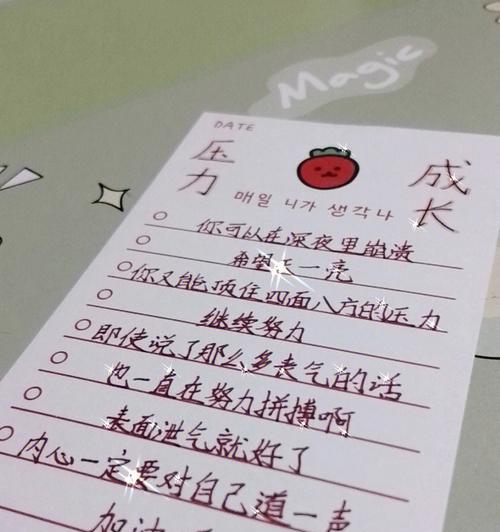 Magic
DATE
压力
成长
매일 니가 생각나
你可以在深夜里崩溃
希望天一亮
你又能顶住四面八方的压力
继续努力
即使说了那么多丧气的话
也一直在努力拼搏啊
表面泄气就好了
内心一定要对自己道一声
加油